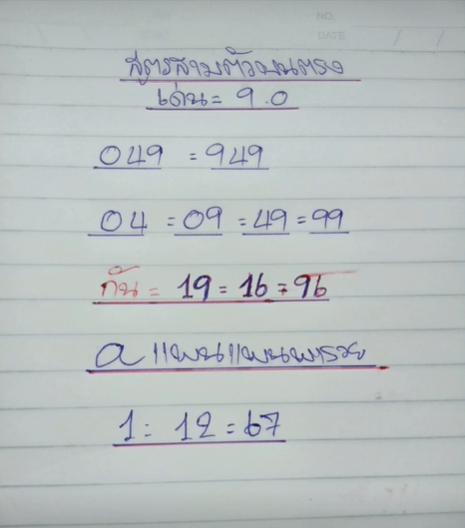 NO.
DATE / /
สูตรสามตัวบนตรง
เด่น = 9.0
049 = 949
04 = 09 = 49 = 99
กัน = 19 = 16 = 96
a แพนแพนพารวย
1 = 12 = 67